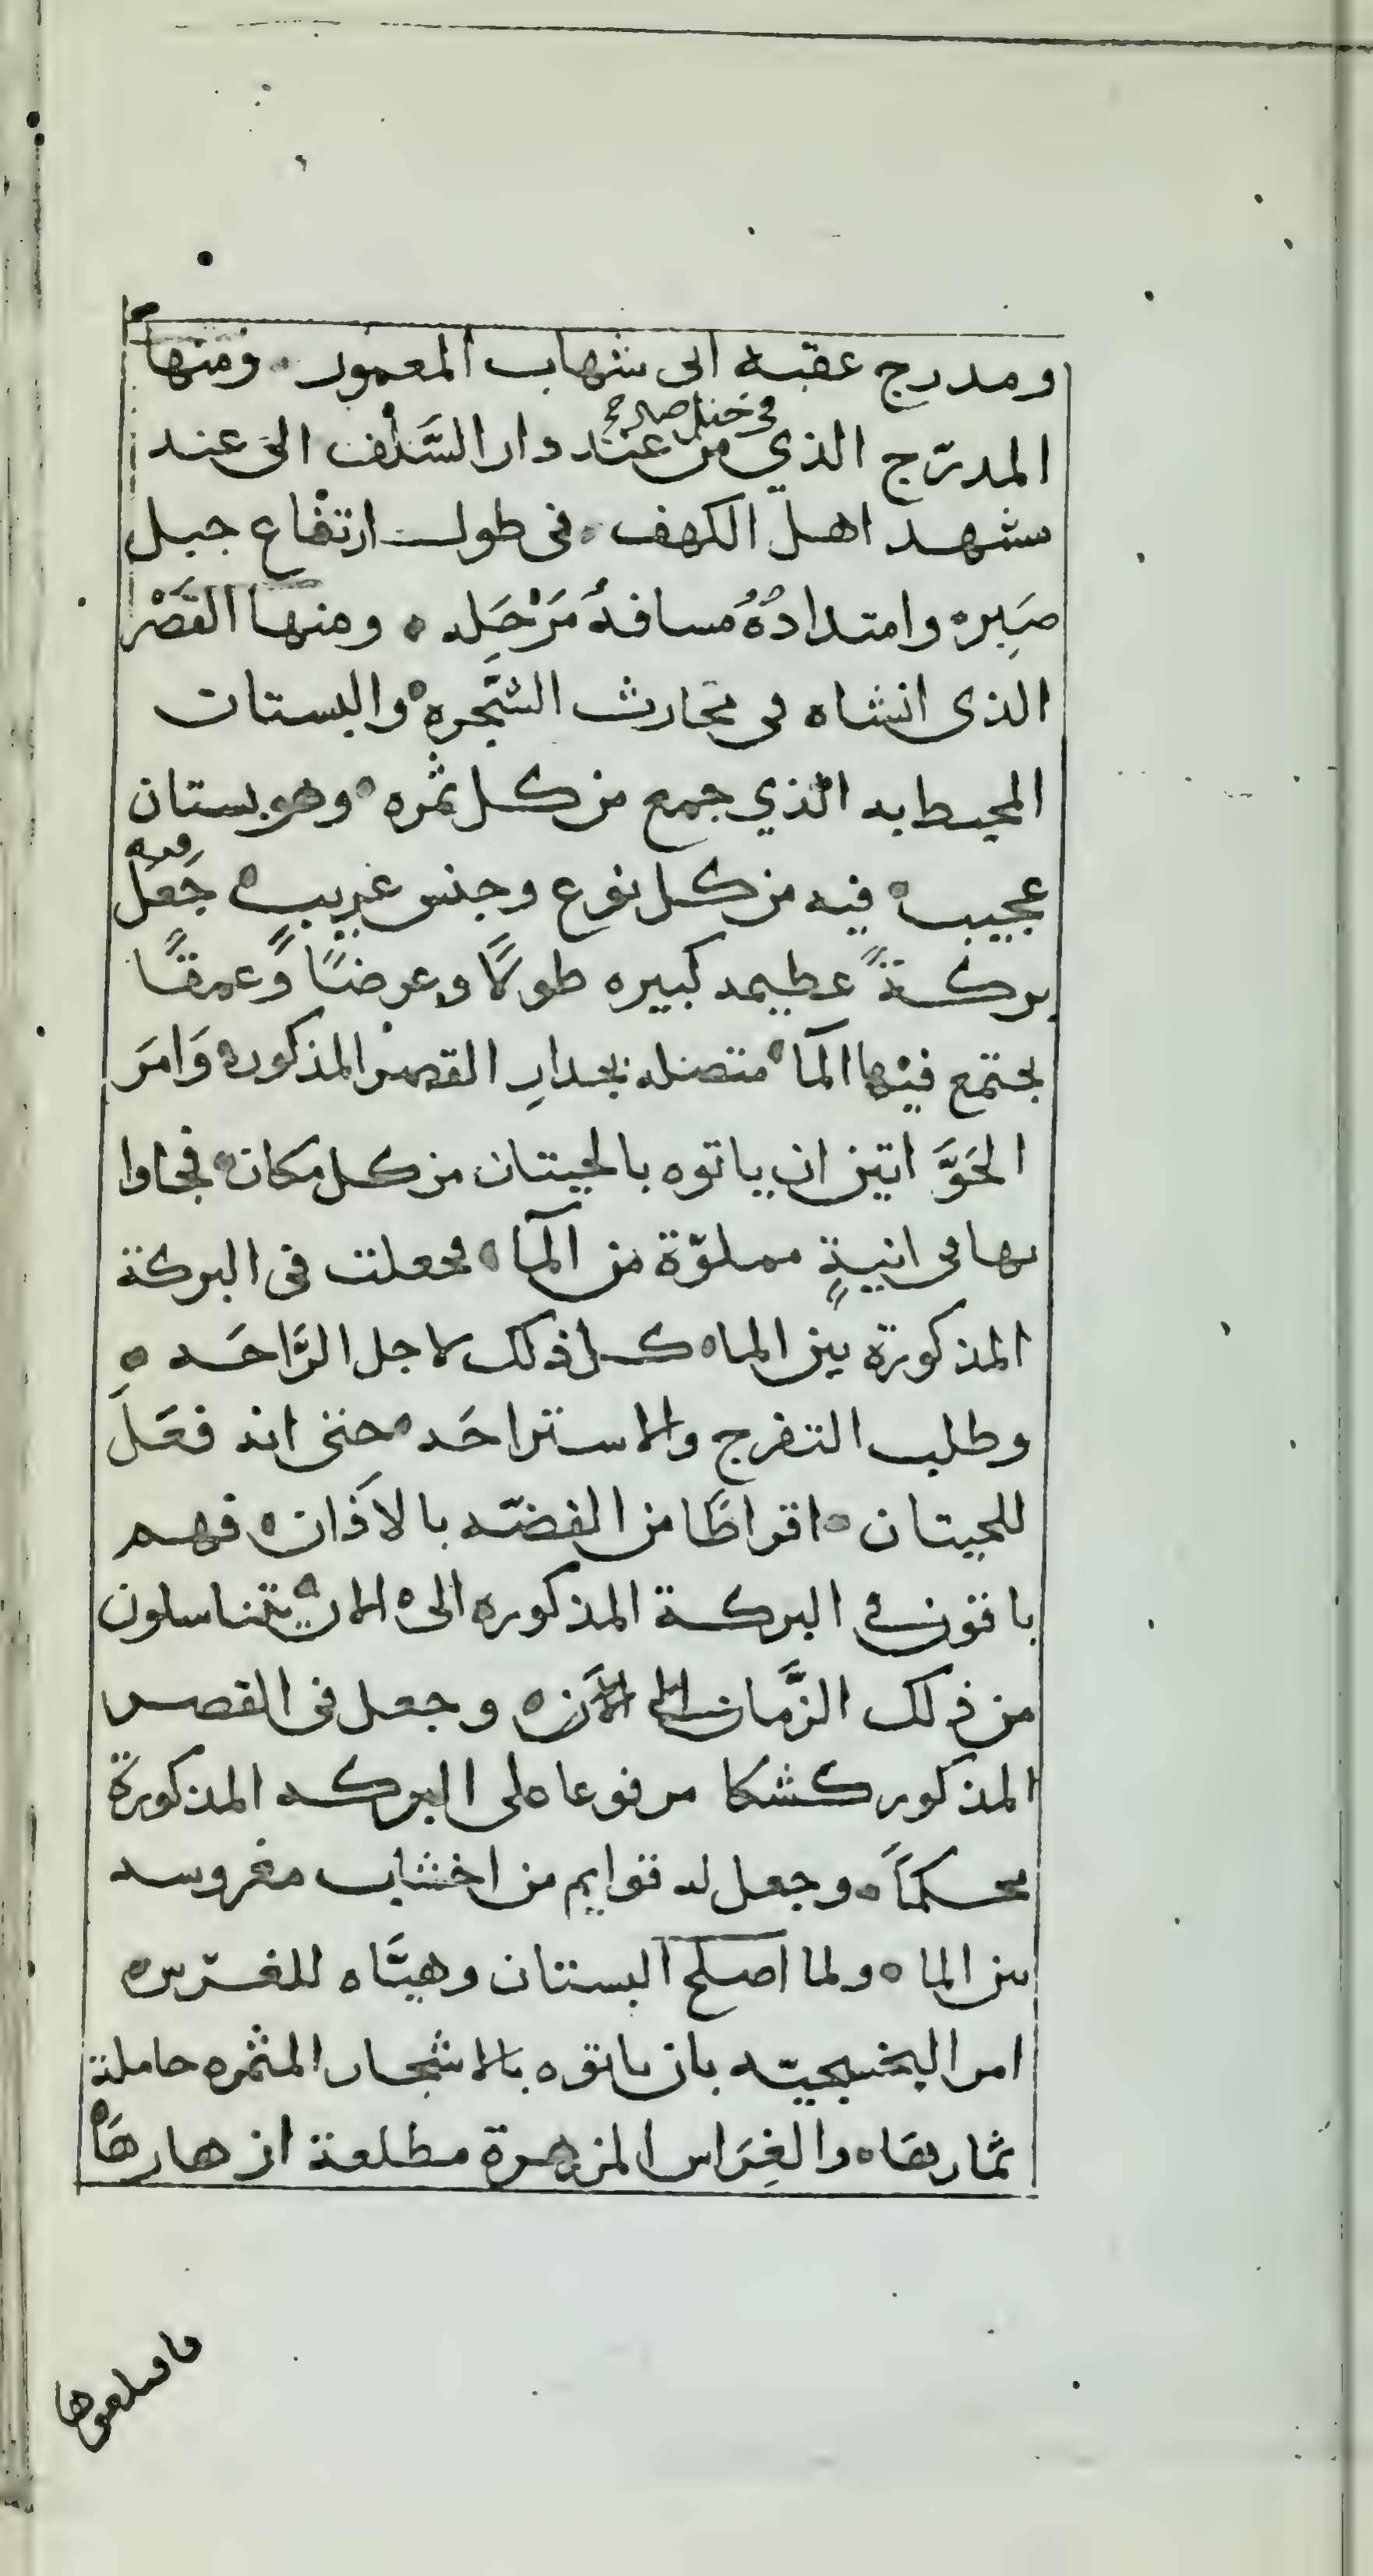 ومدرج عقبه الى شهاب المعمور ومنها
في جبل صبر صح
المدرّج الذي من عند دار السَّلف الى عند
مشهد اهل الكهف في طول ارتفاع جبل
صَبِره وامتدادُهُ مسافةُ مَرْحَله ومنها القَصْر
الذى انشاه في محارث الشَّجره والبستان
المحيط به الذي جمع من كل ثمره وهو بستان
عجيب فيه من كل نوع وجنس غريبٍ جَعَل
فيه
بركةً عظيمه كبيره طولًا وعرضًا وعمقًا
يجتمع فيها المآ متصله بجدارِ القصر المذكور وَامَرَ
الحَوَّاتين ان ياتوه بالحيتان من كل مكان فجاوا
بها في انيةٍ مملوّة من المآ فجعلت في البركة
المذكورة بين الماء كل ذلك لاجل الرَّاحَه
وطلب التفرج والاستراحَه حتى انه فعَلَ
للحيتان اقراطًا من الفضّه بالاذان فهم
باقون في البركة المذكوره الى الان يتناسلون
من ذلك الزَّمان الى الآن وجعل في القصر
المذكور كشكا مرفوعا على البركه المذكورة
محكماً وجعل له قوايم من اخشاب مغروسه
بين الما ولما اصلح البستان وهيَّاه للغرّس
امر اليخسبحيّه بان ياتوه بالاشجار المثمره حاملة
ثمارها والغِرَاس المزهرة مطلعة ازهارهَا